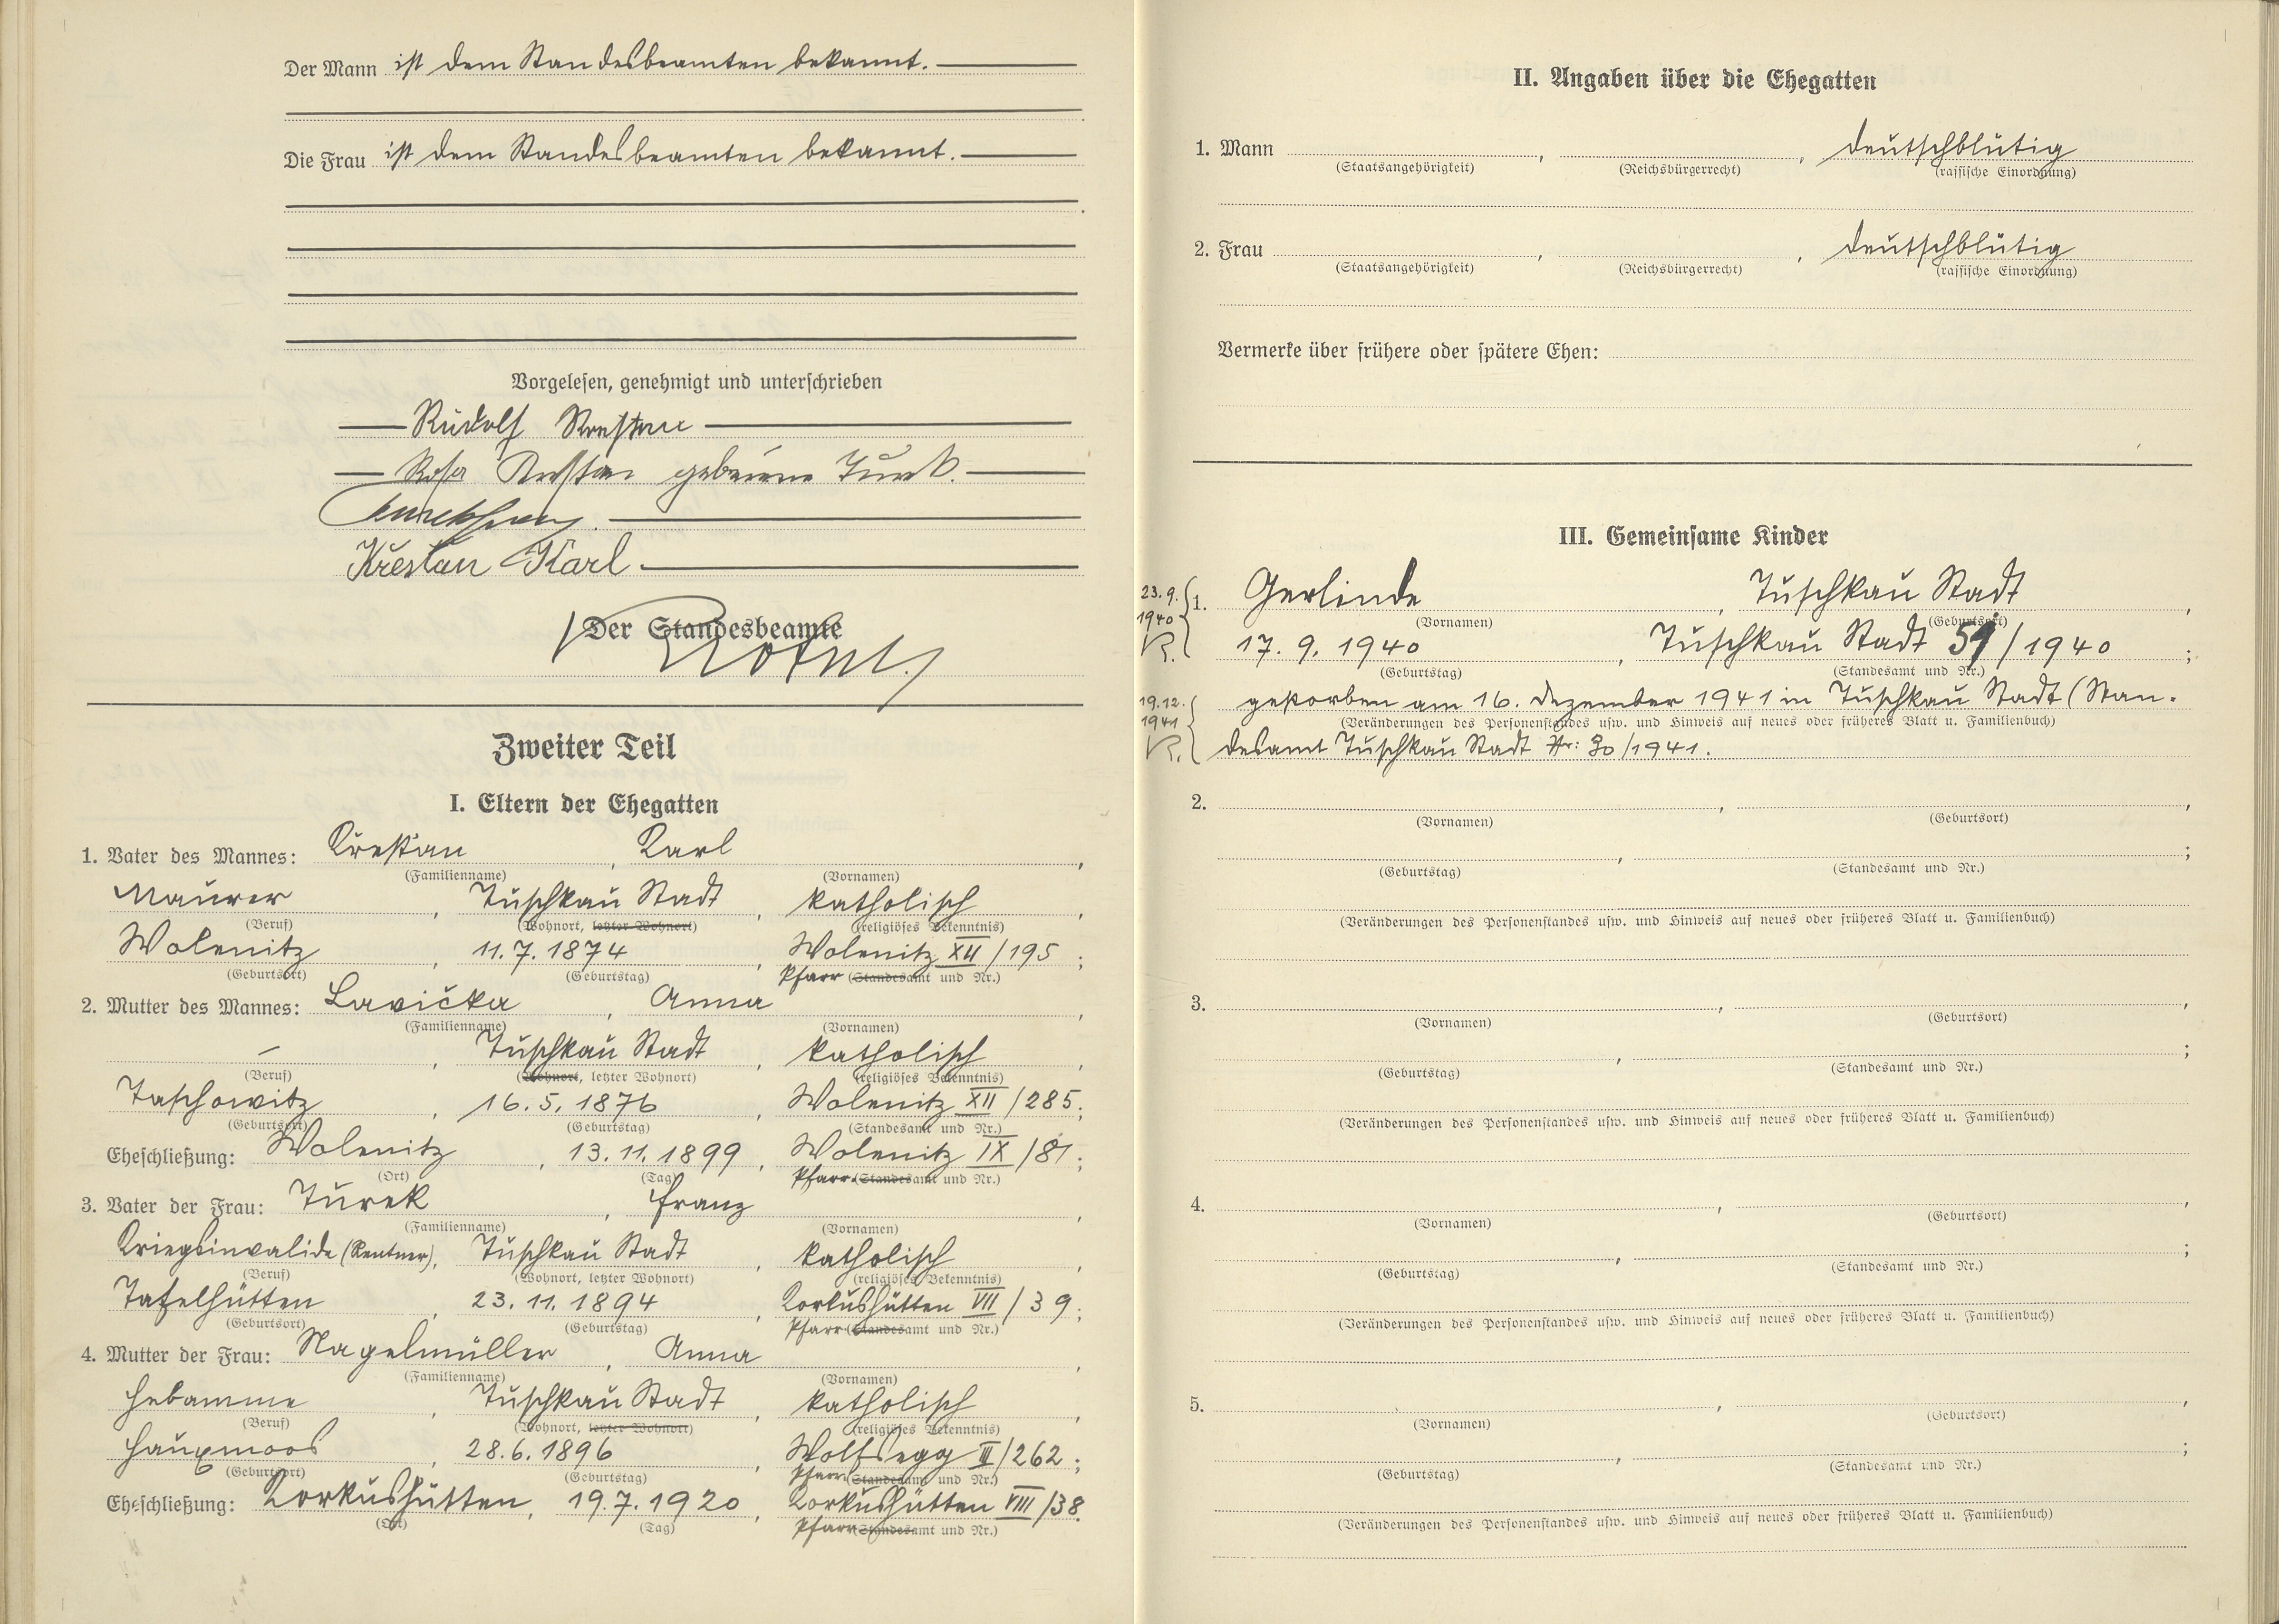 Der Mann ist dem Standesbeamten bekannt.
Die Frau ist dem Standesbeamten bekannt.
Vorgelesen, genehmigt und unterschrieben
Rudolf Krestan
Rosa Krestan geborene Turek.
Křestan Karl
Der Standesbeamte
Zweiter Teil
I. Eltern der Ehegatten
1. Vater des Mannes: Krestan, Karl,
(Familienname) (Vornamen)
Maurer, Tuschkau Stadt, katholisch,
(Beruf) (Wohnort, letzter Wohnort) (religiöses Bekenntnis)
Wolenitz, 11.7.1874, Wolenitz XII/195;
(Geburtsort) (Geburtstag) Pfarr (Standesamt und Nr.)
2. Mutter des Mannes: Lavička, Anna,
(Familienname) (Vornamen)
–, Tuschkau Stadt, katholisch,
(Beruf) (Wohnort, letzter Wohnort) (religiöses Bekenntnis)
Taschowitz, 16.5.1876, Wolenitz XII/285;
(Geburtsort) (Geburtstag) (Standesamt und Nr.)
Eheschließung: Wolenitz, 13.11.1899, Wolenitz IX/81;
(Ort) (Tag) Pfarr (Standesamt und Nr.)
3. Vater der Frau: Turek, Franz,
(Familienname) (Vornamen)
Kriegsinvalide (Rentner), Tuschkau Stadt, katholisch,
(Beruf) (Wohnort, letzter Wohnort) (religiöses Bekenntnis)
Tafelhütten, 23.11.1894, Korkushütten VII/39;
(Geburtsort) (Geburtstag) Pfarr (Standesamt und Nr.)
4. Mutter der Frau: Nagelmüller, Anna,
(Familienname) (Vornamen)
Hebamme, Tuschkau Stadt, katholisch,
(Beruf) (Wohnort, letzter Wohnort) (religiöses Bekenntnis)
28.6.1896, Wolfsegg III/262;
(Geburtsort) (Geburtstag) Pfarr (Standesamt und Nr.)
Eheschließung: Korkushütten, 19.7.1920, Korkushütten VIII/38.
(Ort) (Tag) Pfarr (Standesamt und Nr.)
II. Angaben über die Ehegatten
1. Mann , , deutschblütig
(Staatsangehörigkeit) (Reichsbürgerrecht) (rassische Einordnung)
2. Frau , , deutschblütig
(Staatsangehörigkeit) (Reichsbürgerrecht) (rassische Einordnung)
Vermerke über frühere oder spätere Ehen:
III. Gemeinsame Kinder
23.9.
1940
R.
1. Gerlinde, Tuschkau Stadt,
(Vornamen) (Geburtsort)
17.9.1940, Tuschkau Stadt 59/1940;
(Geburtstag) (Standesamt und Nr.)
19.12.
1941
R.
gestorben am 16. Dezember 1941 in Tuschkau Stadt (Stan-
(Veränderungen des Personenstandes usw. und Hinweis auf neues oder früheres Blatt u. Familienbuch)
desamt Tuschkau Stadt Nr: 30/1941.
2. , ,
(Vornamen) (Geburtsort)
, ;
(Geburtstag) (Standesamt und Nr.)
(Veränderungen des Personenstandes usw. und Hinweis auf neues oder früheres Blatt u. Familienbuch)
3. , ,
(Vornamen) (Geburtsort)
, ;
(Geburtstag) (Standesamt und Nr.)
(Veränderungen des Personenstandes usw. und Hinweis auf neues oder früheres Blatt u. Familienbuch)
4. , ,
(Vornamen) (Geburtsort)
, ;
(Geburtstag) (Standesamt und Nr.)
(Veränderungen des Personenstandes usw. und Hinweis auf neues oder früheres Blatt u. Familienbuch)
5. , ,
(Vornamen) (Geburtsort)
, ;
(Geburtstag) (Standesamt und Nr.)
(Veränderungen des Personenstandes usw. und Hinweis auf neues oder früheres Blatt u. Familienbuch)